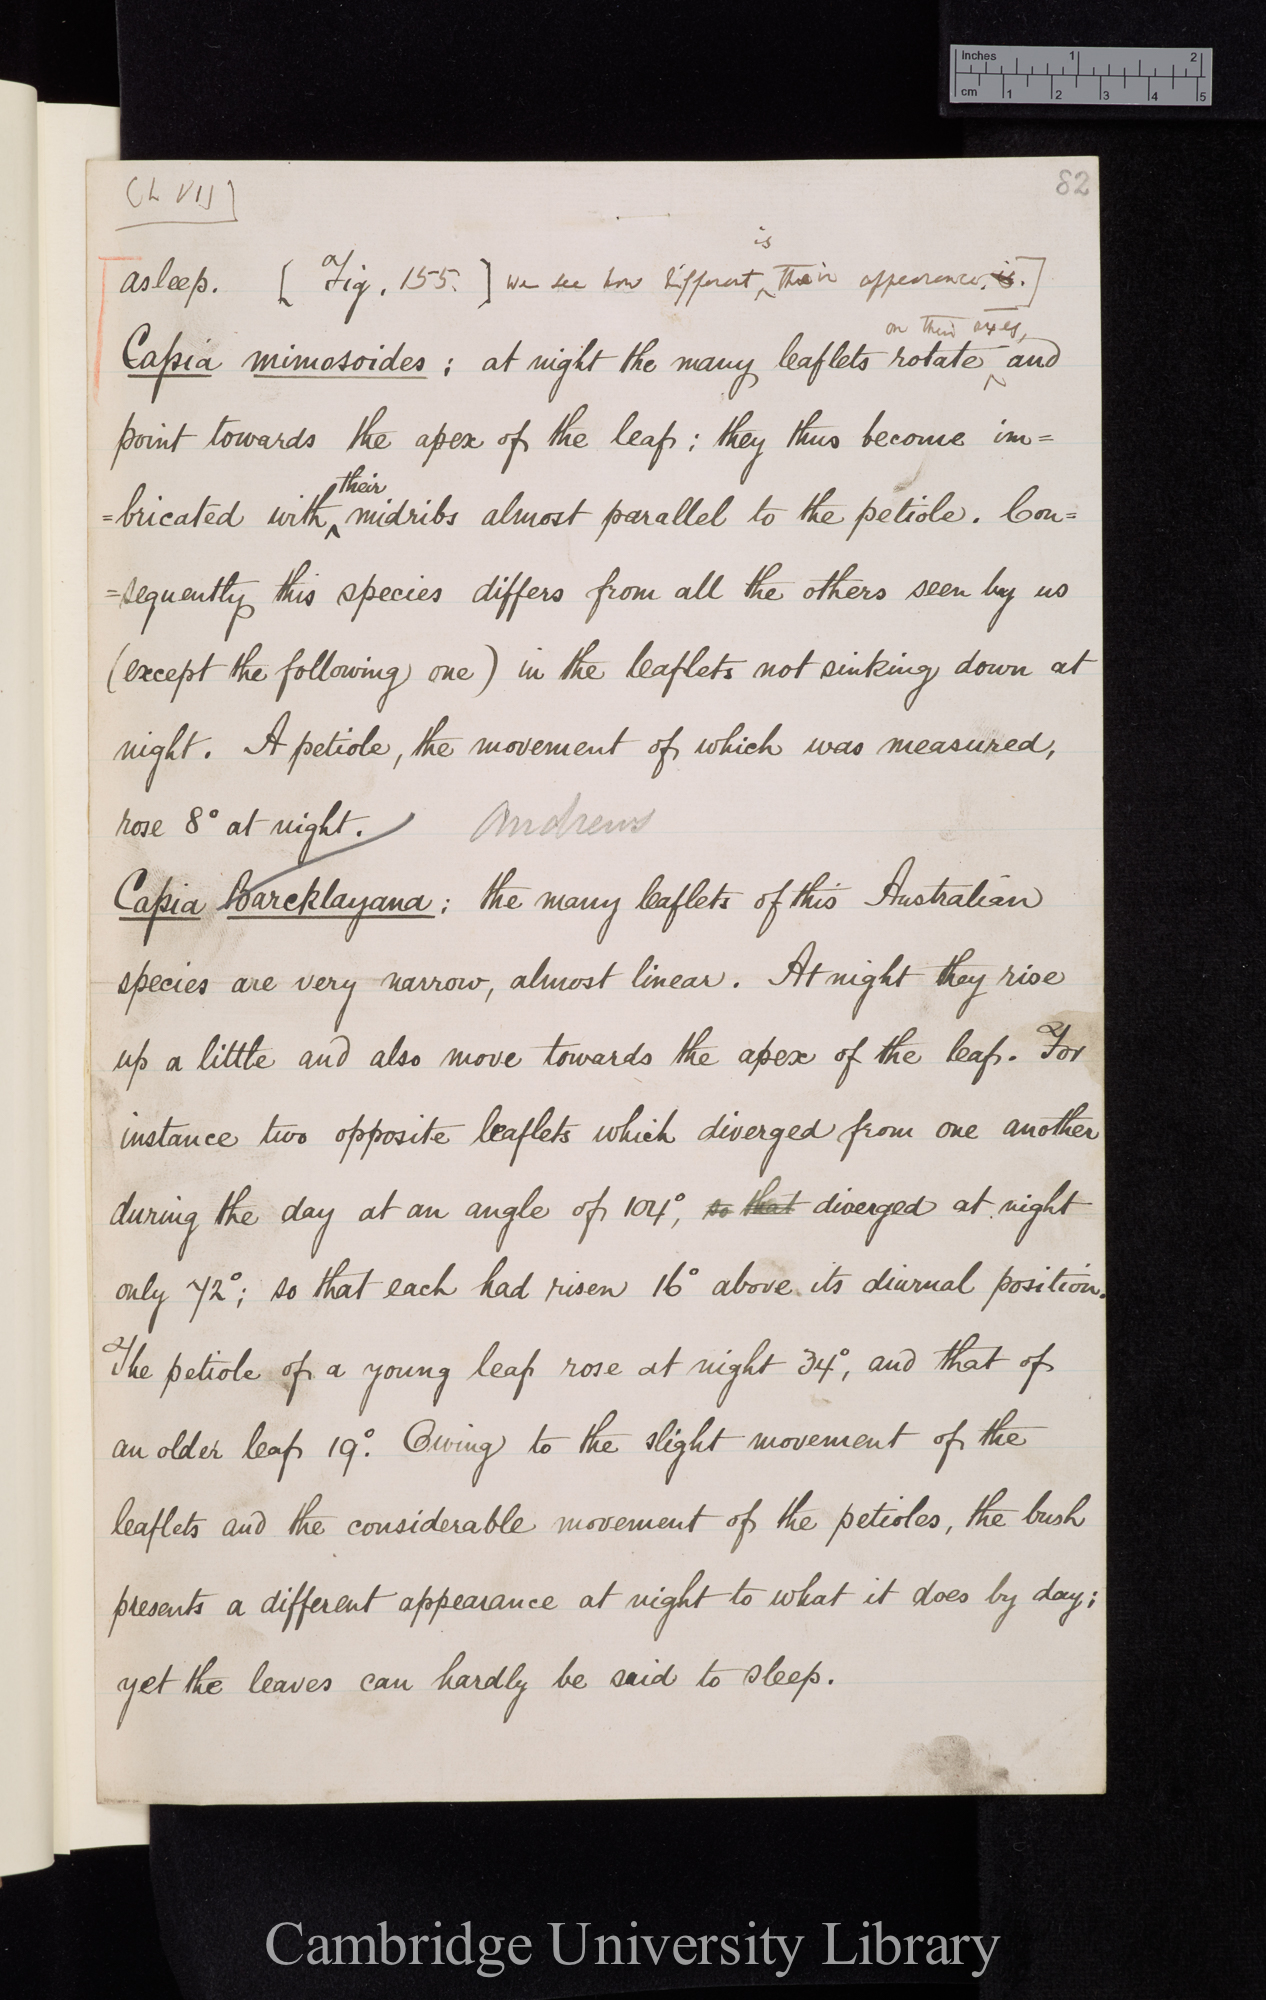 Inches 1 2
cm 1 2 3 4 5
(L VII)
82
asleep. [Fig. 155.] we see how different ^is their appearance, is.]
Caſsia mimosoides; at night the many leaflets rotate ^on their axes, and
point towards the apex of the leaf; they thus become im=
=bricated with ^their midribs almost parallel to the petiole. Con=
=sequently this species differs from all the others seen by us
(except the following one) in the leaflets not sinking down at
night. A petiole, the movement of which was measured,
rose 8° at night. Andrews
Caſsia Barcklayana; the many leaflets of this Australian
species are very narrow, almost linear. At night they rise
up a little and also move towards the apex of the leaf. For
instance two opposite leaflets which diverged from one another
during the day at an angle of 104°, so that diverged at night
only 72°; so that each had risen 16° above its diurnal position.
The petiole of a young leaf rose at night 34°, and that of
an older leaf 19°. Owing to the slight movement of the
leaflets and the considerable movement of the petioles, the bush
presents a different appearance at night to what it does by day;
yet the leaves can hardly be said to sleep.
Cambridge University Library